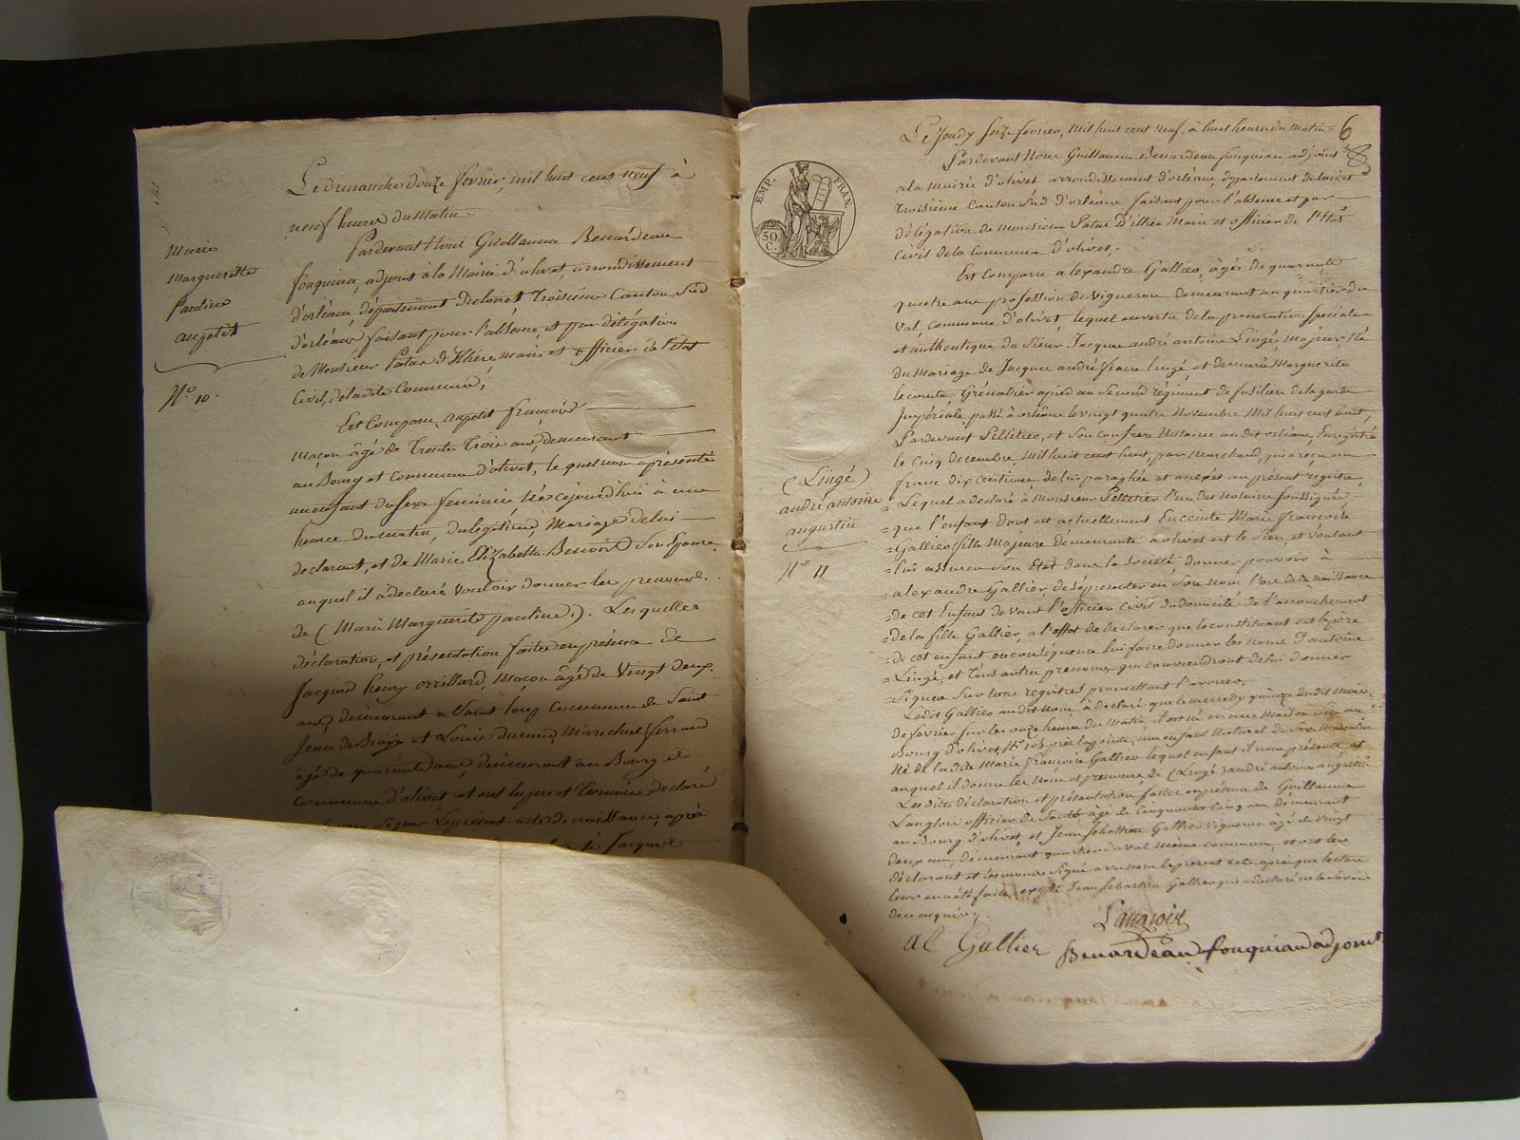 Le dimanche douze février, mil huit cent neuf à
neuf heures du matin
Pardevant Nous Guillaume Benardeau
fouquiau, adjoint à la Mairie d'olivet, arrondissement
d'orléans, département du loiret Troisième Canton Sud
d'orléans faisant pour l'absence, et par délégation
de Monsieur Patas d'Illiers, maire et officier de l'état
Civil, de ladite Commune,
Est Comparu, aupetit françois
maçon âgé de Trente Trois ans, demeurant
au Bourg et commune d'olivet, lequel nous a présenté
un enfant du sexe féminin née cejourd'hui à une
heure du matin, du légitime Mariage de lui
déclarant, et de Marie Elizabeth Benoist Son Epouse,
auquel il a déclaré vouloir donner les prénoms
de (Marie Marguerite pauline). Lesquelles
déclaration, et présentation faites en présence de
Jacques henry orillard, Maçon âgé de Vingt deux
ans, demeurant a Saint loup commune de Saint
Jean de Braye et Louis Maréchal ferrand
âgé de quarante ans, demeurant au Bourg et
commune d'olivet, et ont le pere et Temoins déclaré
Signer le present acte de naissance, après
Jacques
Marie
Marguerette
Pauline
aupetit
No 10.
6
8
EMP. FRAN.
50 C.
Le Jeudy seize fevrier, mil huit cent neuf, à huit heures du matin
Pardevant Nous Guillaume Benardeau fouquiau adjoint
a la mairie d'olivet arrondissement d'orléans, département du loiret
Troisième Canton Sud d'orléans faisant pour l'absence et par
délégation de monsieur Patas D'illiers Maire et officier de l'état
Civil de la Commune d'olivet,
Est Comparu alexandre Gallier, âgé de quarante
quatre ans profession de vigneron demeurant au quartier du
Val, commune d'olivet, lequel en vertu de la procuration Spéciale
et authentique du Sieur Jacques andré antoine Lingé, Majeur, fils
du Mariage de Jacques andré lingé, et de marie Marguerite
lecomte, Grénadier à pied au Second régiment de fusiliers de la garde
Impériale, passé à orléans le vingt quatre Novembre Mil huit cent huit,
Pardevant Pelletier, et son confrere Notaires audit orléans, Enregistré
le Cinq decembre, Mil huit cent huit, par Marchand, qui a reçu un
franc dix centimes, de lui paraphée et anexée au présent registre
Lequel a déclaré à Monsieur Pelletier l'un des Notaires soussignés
que l'enfant dont est actuellement Enceinte Marie françoise
Gallier fille Majeure demeurante a olivet est le Sien, et Voulant
lui assurer son Etat dans la Société, donne pouvoir à
alexandre Gallier, de se présenter en Son nom l'ors de la naissance
de cet Enfant devant l'officier civil du domicile de l'accouchement
de la fille Gallier, a l'effet de déclarer que le constituant est le père
de cet enfant en consequence lui faire donner les noms d'antoine
Lingé, et Tous autres prenoms qui conviendront de lui donner
Signer Sur tous registres promettant l'avouer,
Ledit Gallier audit nom, à déclaré que le mercredy quinze dudit mois
de fevrier, sur les onze heures du matin, il est né en une Maison Sise au
Bourg d'olivet, un enfant naturel
Né de ladite Marie françoise Gallier lequel enfant il nous présente, et
auquel il donne les Noms et prenoms de (Lingé andré antoine augustin
Les dites déclaration et présentation faites en présence de Guillaume
Langlois officier de Santé âgé de Cinquante cinq ans demeurant
au bourg d'olivet, et Jean Sebastien Gallier Vigneron âgé de vingt
deux ans, demeurant quartier du val même commune, et ont les
déclarant et témoins signé avec nous le present acte après que lecture
leur en a été faite, excepté Jean Sebastien Gallier qui a déclaré ne le savoir
de ce enquis.
Langlois
al Gallier Benardeau fouquiau adjoint
(Lingé)
andré antoine
augustin
No 11